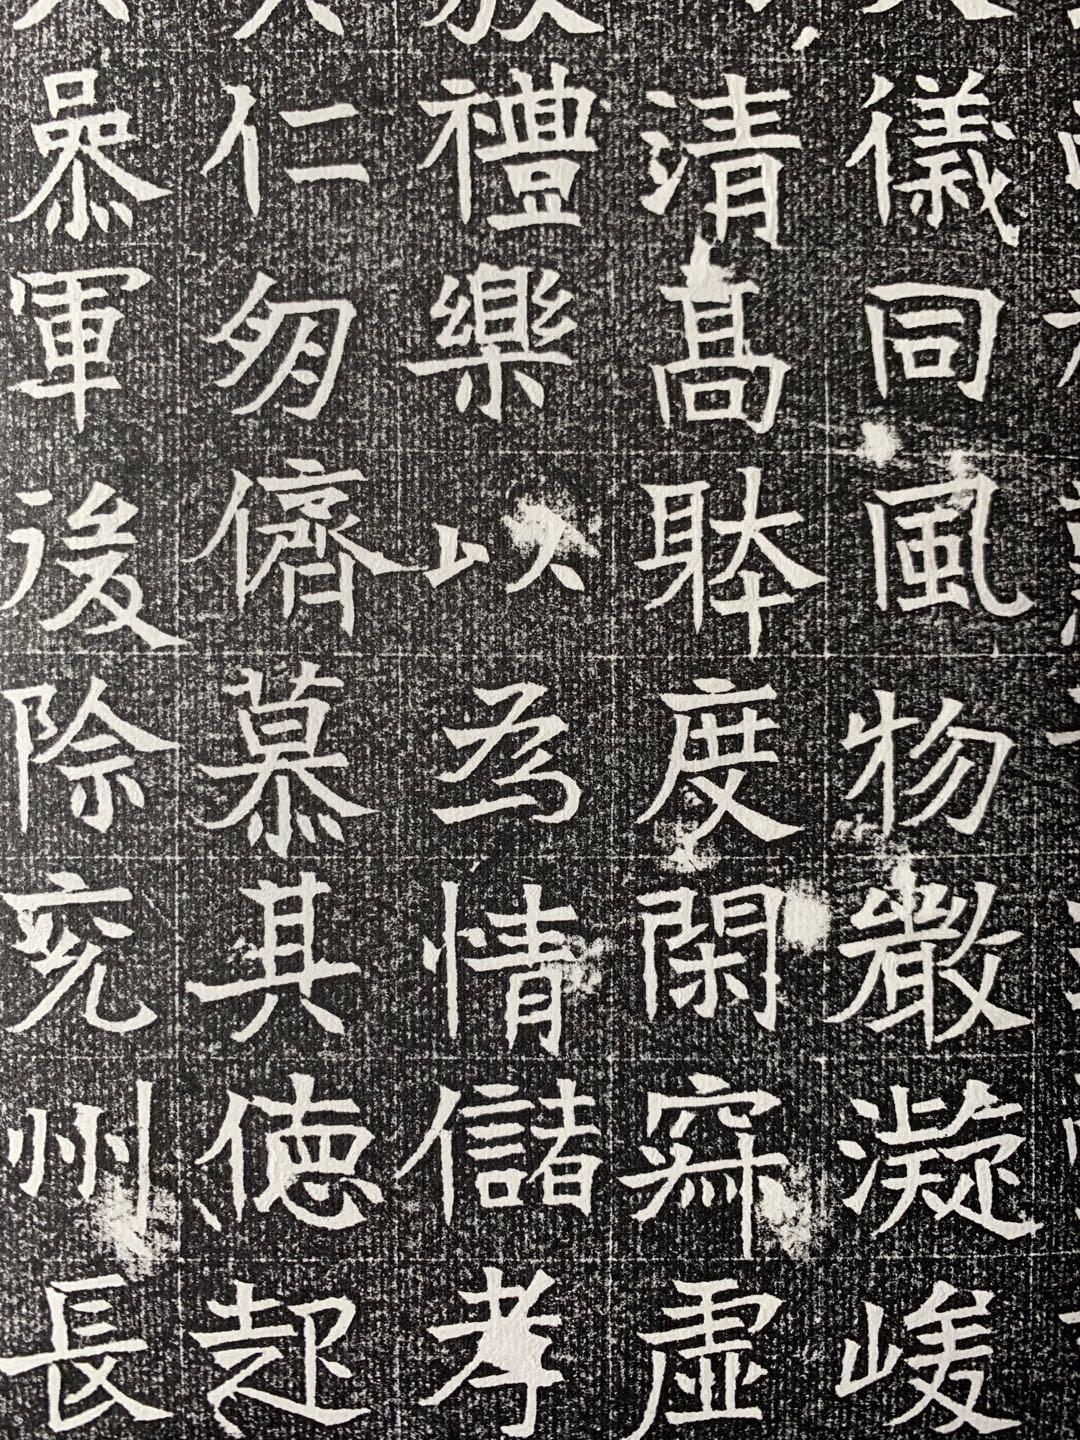 儀同風物嚴凝峻
清高躰度閑虛
禮樂以為情儲孝
仁朋儕慕其德起
叅軍後除兗州長